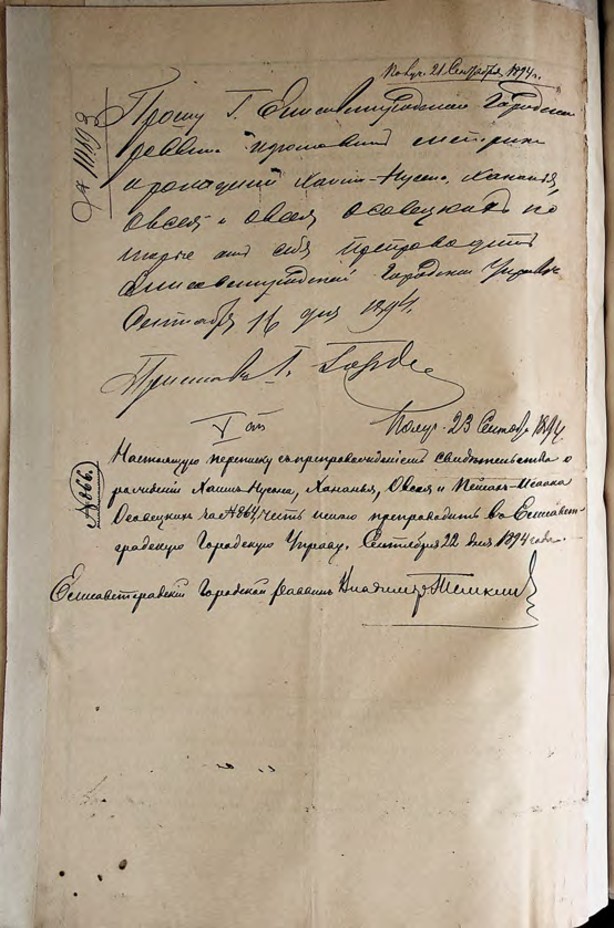 Получ. 21 Сентября 1894 г.
№ 11193
Прошу Г. Елисаветградскаго Городского
метрики
о рождении Хаим-Нусена, Ханания,
Овсея и Овсея Осовецких по
препроводить
Елисаветградской Городской Управе
Сентября 16 дня 1894.
Пристав
V
Получ. 23 Сентября 1894
№ 866.
Настоящую переписку съ препровожденіемъ свидѣтельства о
рожденіи Хаимъ-Нусена, Хананья, Овсея и Исаака
Осовецкихъ за № 864 честь имѣю препроводить въ Елисавет-
градскую Городскую Управу. Сентября 22 дня 1894 года.
Елисаветградскій Городской Раввинъ Владиміръ Темкинъ